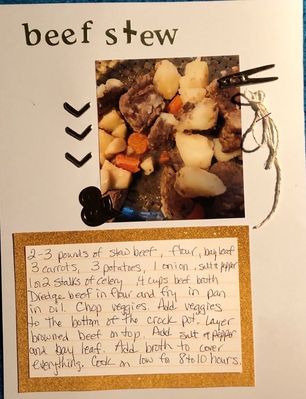 beef stew
2-3 pounds of stew beef, flour, bay leaf
3 carrots, 3 potatoes, 1 onion, salt & pepper
1 or 2 stalks of celery, 4 cups beef broth
Dredge beef in flour and fry in pan
in oil. Chop veggies. Add veggies
to the bottom of the crock pot. Layer
browned beef on top. Add salt & pepper
and bay leaf. Add broth to cover
everything. Cook on low for 8 to 10 hours.